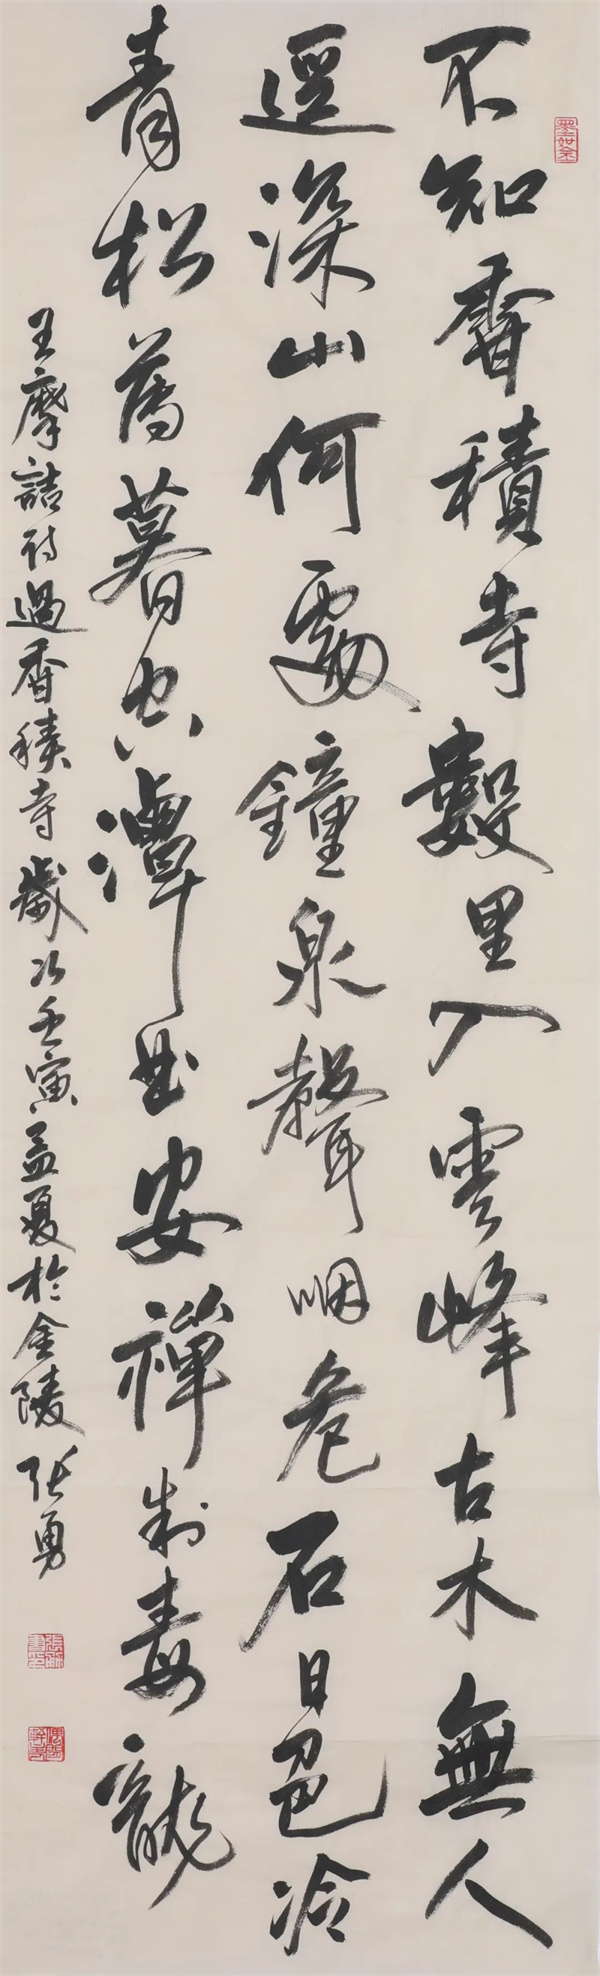 不知香積寺數里入雲峰古木無人
逕深山何處鐘泉聲咽危石日色冷
青松薄暮空潭曲安禪制毒龍
王摩詰詩過香積寺歲次壬寅孟夏於金陵張勇